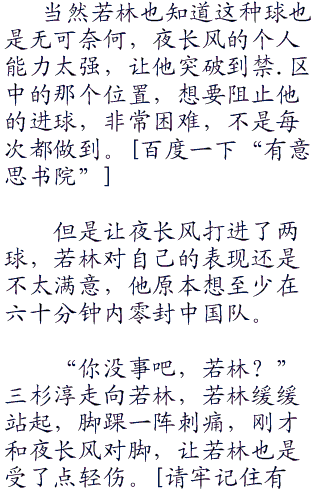 当然若林也知道这种球也
是无可奈何，夜长风的个人
能力太强，让他突破到禁.区
中的那个位置，想要阻止他
的进球，非常困难，不是每
次都做到。[百度一下“有意
思书院”]
但是让夜长风打进了两
球，若林对自己的表现还是
不太满意，他原本想至少在
六十分钟内零封中国队。
“你没事吧，若林？”
三杉淳走向若林，若林缓缓
站起，脚踝一阵刺痛，刚才
和夜长风对脚，让若林也是
受了点轻伤。[请牢记住有